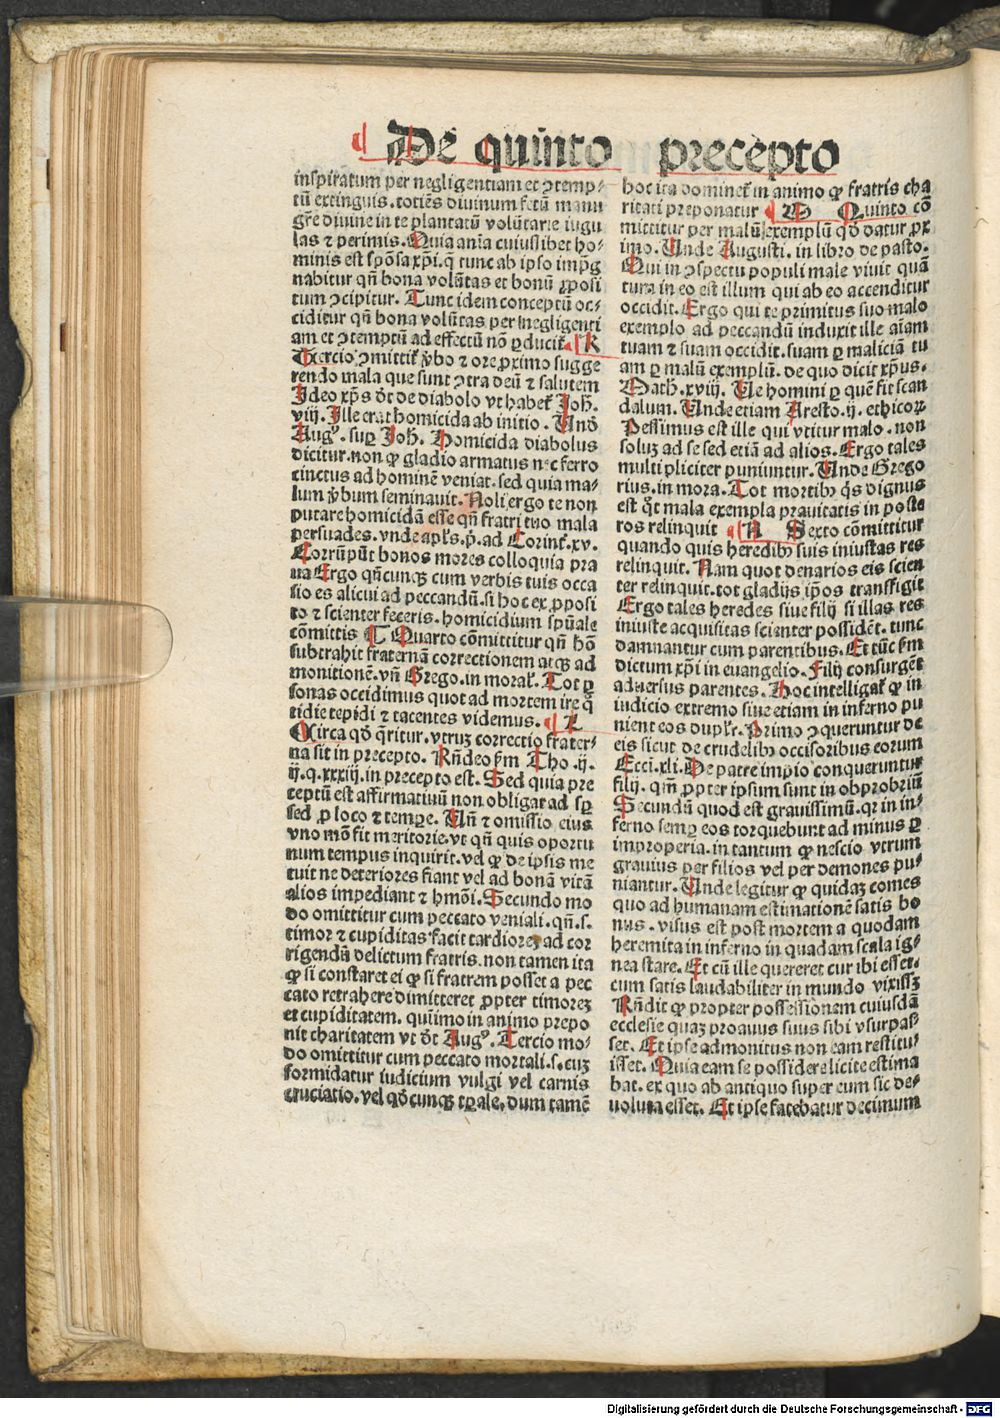 De quinto precepto
inspiratum per negligentiam et ɔtemp⸗
tū extinguis. totiēs diuinum fetū manu
gr̄e diuine in te plantatū volūtarie iugu
las ⁊ perimis. Quia anīa cuiuslibet ho⸗
minis est spōsa xp̄i. q̄ tunc ab ipso imp̄g
nabitur qn̄ bona volūtas et bonū ꝓposi
tum ɔcipitur. Tunc idem conceptū oc⸗
ciditur qn̄ bona volūtas per negligenti
am et ɔtemptū ad effectū nō ꝑducit̄. K
Tercio ɔmittit̄ v̄bo ⁊ ore proximo sugge
rendo mala que sunt ɔtra deū ⁊ salutem
Ideo xp̄s dt̄ de diabolo vt habet̄ Joh̄.
viij. Ille erat homicida ab initio. Vnd̄
Augꝰ. suꝑ Joh̄. Homicida diabolus
dicitur. non ꝙ gladio armatus nec ferro
cinctus ad hominē veniat. sed quia ma⸗
lum v̄bum seminauit. Noli ergo te non
putare homicidā esse qn̄ fratri tuo mala
persuades. vnde apl̄s. p̄. ad Corint̄. xv.
Corrūpūt bonos mores colloquia pra
ua Ergo qn̄cunqꝫ cum verbis tuis occa
sio es alicui ad peccandū. si hoc ex ꝓposi
to ⁊ scienter feceris. homicidium spūale
cōmittis Quarto cōmittitur qn̄ hō
subtrahit fraternā correctionem atqꝫ ad
monitionē. vn̄ Grego. in moral̄. Tot ꝑ
sonas occidimus quot ad mortem ire q̄
tidie tepidi ⁊ tacentes videmus. L
Circa qd̄ q̄ritur. vtrūꝫ correctio frater⸗
na sit in precepto. Rn̄deo ẜm Tho. ij.
ij. q. xxxiij. in precepto est. Sed quia pre
ceptū est affirmatiuū non obligat ad sꝑ
sed ꝓ loco ⁊ tempore. Vn̄ ⁊ omissio eius
vno mō fit meritorie. vt qn̄ quis oportu
num tempus inquirit. vel ꝙ de ipsis me
tuit ne deteriores fiant vel ad bonā vitā
alios impediant ⁊ hmōi. Secundo mo
do omittitur cum peccato veniali. qn̄. s.
timor ⁊ cupiditas facit tardiorē ad cor
rigendū delictum fratris. non tamen ita
ꝙ si constaret ei ꝙ si fratrem posset a pec
cato retrahere dimitteret ꝓpter timoreꝫ
et cupiditatem. quīimo in animo prepo
nit charitatem vt dt̄ Augꝰ. Tercio mo⸗
do omittitur cum peccato mortali. s. cuꝫ
formidatur iudicium vulgi vel carnis
cruciatio. vel qd̄cunqꝫ tꝑale. dum tamē
hoc ita dominet̄ in animo ꝙ fratris cha
ritati preponatur M Quinto cō
mittitur per malū exemplū qd̄ datur ꝓx
imo. Vnde Augusti. in libro de pasto.
Qui in ɔspectu populi male viuit quā
tum in eo est illum qui ab eo accenditur
occidit. Ergo qui te primitus suo malo
exemplo ad peccandū induxit ille aīam
tuam ⁊ suam occidit. suam ꝑ maliciā tu
am ꝑ malū exemplū. de quo dicit xp̄us.
Math̄. xviij. Ve homini ꝑ quē fit scan
dalum. Vnde etiam Aresto. ij. ethicoꝝ
Pessimus est ille qui vtitur malo. non
soluꝫ ad se sed etiā ad alios. Ergo tales
multipliciter puniuntur. Vnde Grego
rius. in mora. Tot mortibꝰ q̄s dignus
est q̄t mala exempla prauitatis in poste
ros relinquit N Sexto cōmittitur
quando quis heredibꝰ suis iniustas res
relinquit. Nam quot denarios eis scien
ter relinquit. tot gladijs ip̄os transfigit
Ergo tales heredes siue filij si illas res
iniuste acquisitas scienter possidēt. tunc
damnantur cum parentibus. Et tūc ẜm
dictum xp̄i in euangelio. Filij consurgēt
aduersus parentes. Hoc intelligat̄ ꝙ in
iudicio extremo siue etiam in inferno pu
nient eos dupl̄r. Primo ɔqueruntur de
eis sicut de crudelibꝰ occisoribus eorum
Ecci. xli. De patre impio conqueruntur
filij. qm̄ ꝓpter ipsum sunt in obprobriū
Secundū quod est grauissimū. qr̄ in in⸗
ferno semꝑ eos torquebunt ad minus ꝑ
improperia. in tantum ꝙ nescio vtrum
grauius per filios vel per demones pu⸗
niantur. Vnde legitur ꝙ quidaꝫ comes
quo ad humanam estimationē satis bo
nus. visus est post mortem a quodam
heremita in inferno in quadam scala ig⸗
nea stare. Et cū ille quereret cur ibi esset.
cum satis laudabiliter in mundo vixissꝫ
Rn̄dit ꝙ propter possessionem cuiusdā
ecclesie quaꝫ proauus suus sibi vsurpaſ⸗
set. Et ipse admonitus non eam restitu⸗
isset. Quia eam se possidere licite estima
bat. ex quo ab antiquo super eum sic de⸗
uoluta esset. Et ipse fatebatur decimum
Digitalisierung gefördert durch die Deutsche Forschungsgemeinschaft - DFG